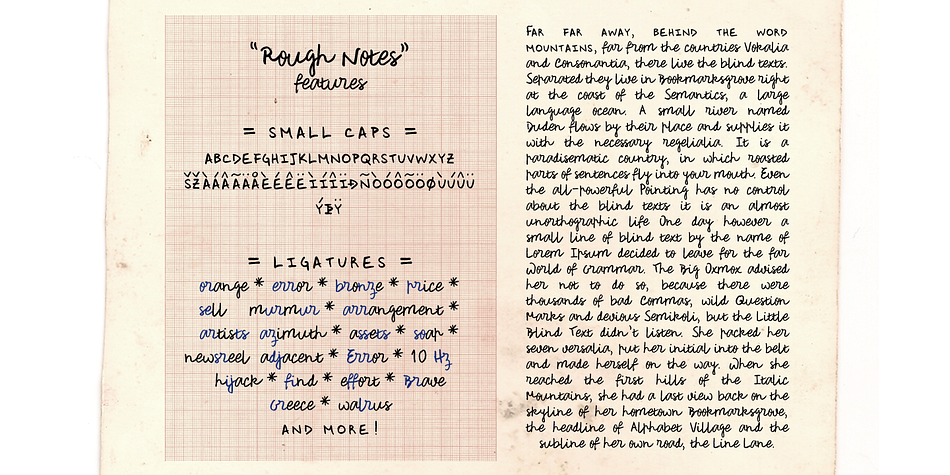 "Rough Notes"
features
= SMALL CAPS =
ABCDEFGHIJKLMNOPQRSTUVWXYZ
ŠŽÀÁÂÃÄÅÈÉÊËÌÍÎÏÐÑÒÓÔÕÖØÙÚÛÜ
ÝÞŸ
= LIGATURES =
orange * error * bronze * price *
sell murmur * arrangement *
artists azimuth * assets * soap *
newsreel adjacent * Error * 10 Hz
hijack * find * effort * Brave
Greece * walrus
AND MORE!
FAR FAR AWAY, BEHIND THE WORD
MOUNTAINS, far from the countries Vokalia
and Consonantia, there live the blind texts.
Separated they live in Bookmarksgrove right
at the coast of the Semantics, a large
language ocean. A small river named
Duden flows by their place and supplies it
with the necessary regelialia. It is a
paradisematic country, in which roasted
parts of sentences fly into your mouth. Even
the all-powerful Pointing has no control
about the blind texts it is an almost
unorthographic life One day however a
small line of blind text by the name of
Lorem Ipsum decided to leave for the far
World of Grammar. The Big Oxmox advised
her not to do so, because there were
thousands of bad Commas, wild Question
Marks and devious Semikoli, but the Little
Blind Text didn't listen. She packed her
seven versalia, put her initial into the belt
and made herself on the way. When she
reached the first hills of the Italic
Mountains, she had a last view back on the
skyline of her hometown Bookmarksgrove,
the headline of Alphabet Village and the
subline of her own road, the Line Lane.